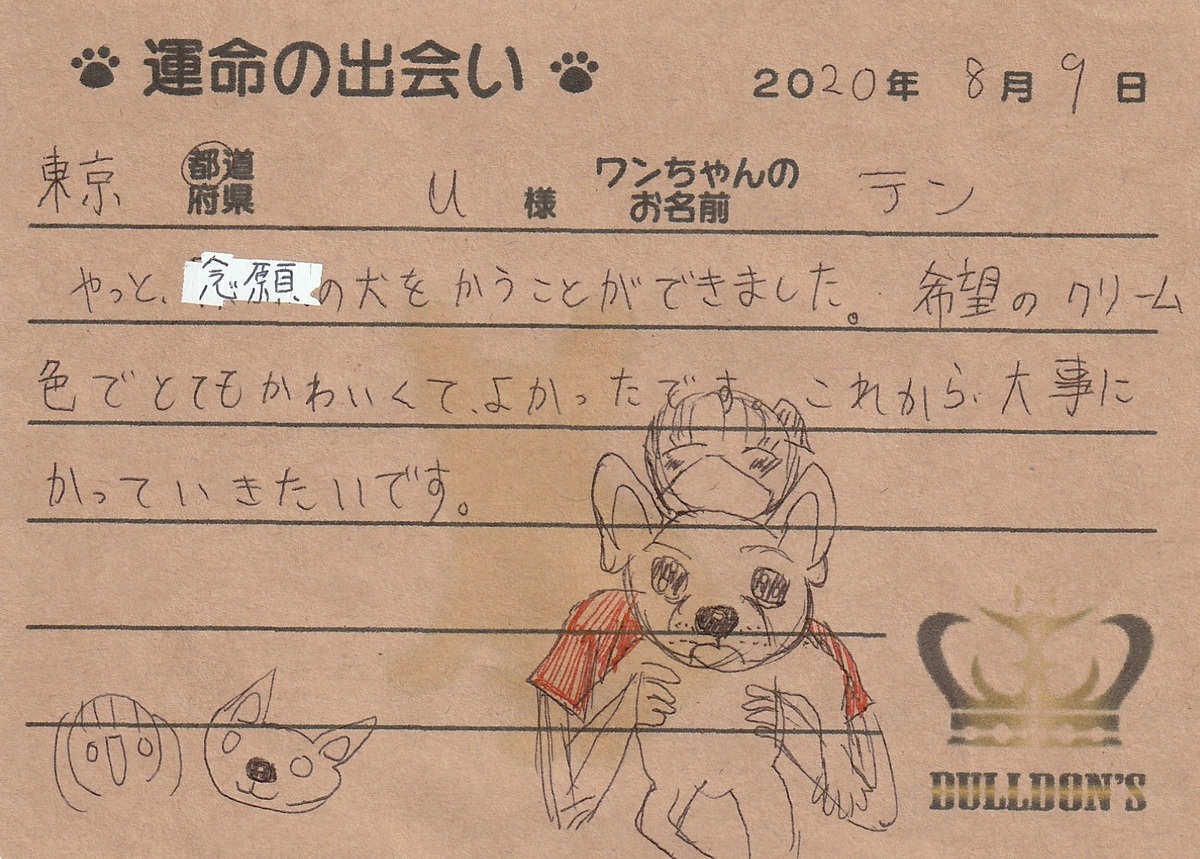 運命の出会い
2020年 8月 9日
東京 都道府県 U 様 ワンちゃんのお名前 テン
やっと、念願の犬をかうことができました。希望のクリーム
色でとてもかわいくて、よかったです。これから、大事に
かっていきたいです。
BULLDON'S